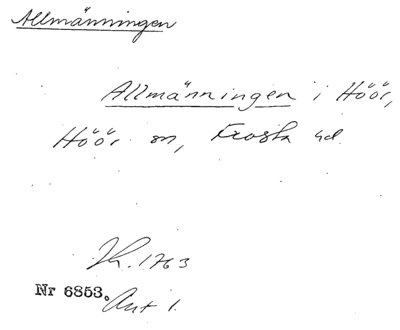 Allmänningen
Allmänningen i Höör,
Höör sn, Frosta hd.
Jh. 1763
Nr 6853. Akt 1.